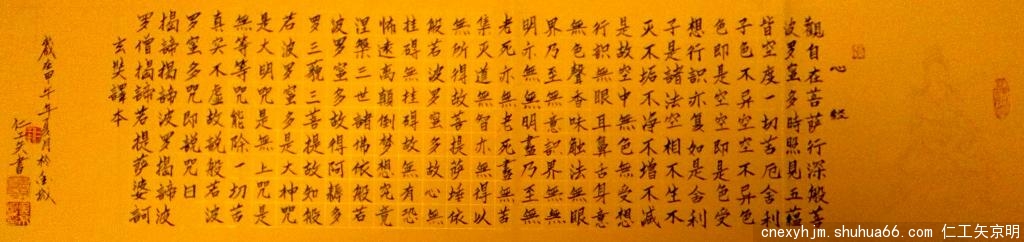 心經
觀自在菩萨行深般若
波罗蜜多時照見五蕴
皆空度一切苦厄舍利
子色不异空空不异色
色即是空空即是色受
想行識亦复如是舍利
子是諸法空相不生不
灭不垢不净不增不减
是故空中無色無受想
行識無眼耳鼻舌身意
無色聲香味触法無眼
界乃至無意識界無無
明亦無無明盡乃至無
老死亦無老死盡無苦
集灭道無智亦無得以
無所得故菩提萨埵依
般若波罗蜜多故心無
挂碍無挂碍故無有恐
怖遠离顛倒梦想究竟
涅槃三世諸佛依般若
波罗蜜多故得阿耨多
罗三藐三菩提故知般
若波罗蜜多是大神咒
是大明咒是無上咒是
無等等咒能除一切苦
真实不虚故說般若波
罗蜜多咒即說咒曰
揭諦揭諦波罗揭諦波
罗僧揭諦菩提萨婆訶
玄奘譯本
歲在甲午年月於金城
仁矢書
cnexyhjm.shuhua66.com 仁工矢京明